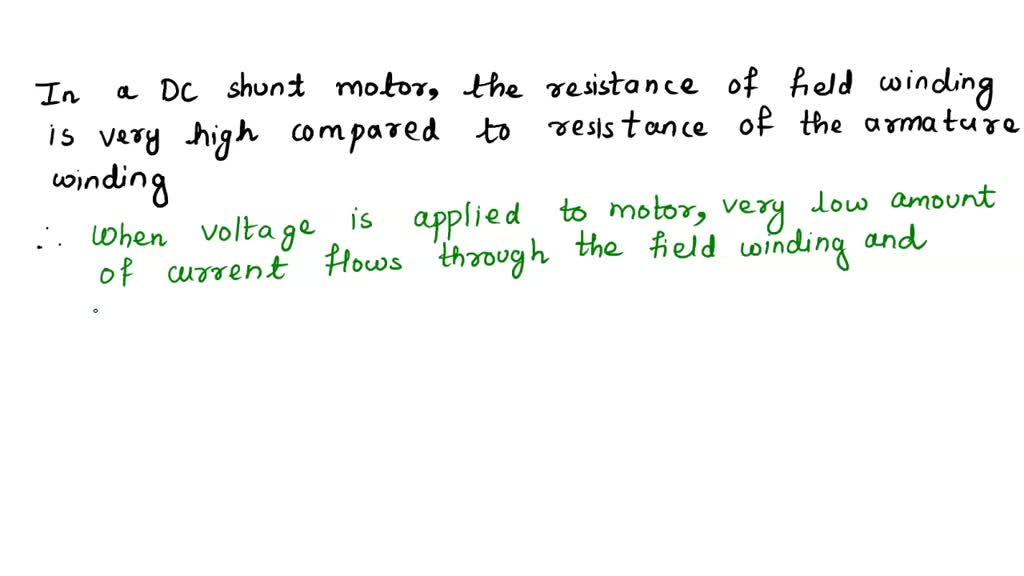 In a DC shunt motor, the resistance of field winding
is very high compared to resistance of the armature
winding
∴ When voltage is applied to motor, very low amount
of current flows through the field winding and